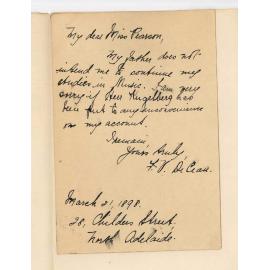 My dear Miss Pearson,
My father does not
intend me to continue my
studies in Music. I am very
sorry if Herr Kugelberg has
been put to any inconvenience
on my account.
I remain
Yours truly
F. V.
March 21, 1898.
28, Childers Street.
North Adelaide.